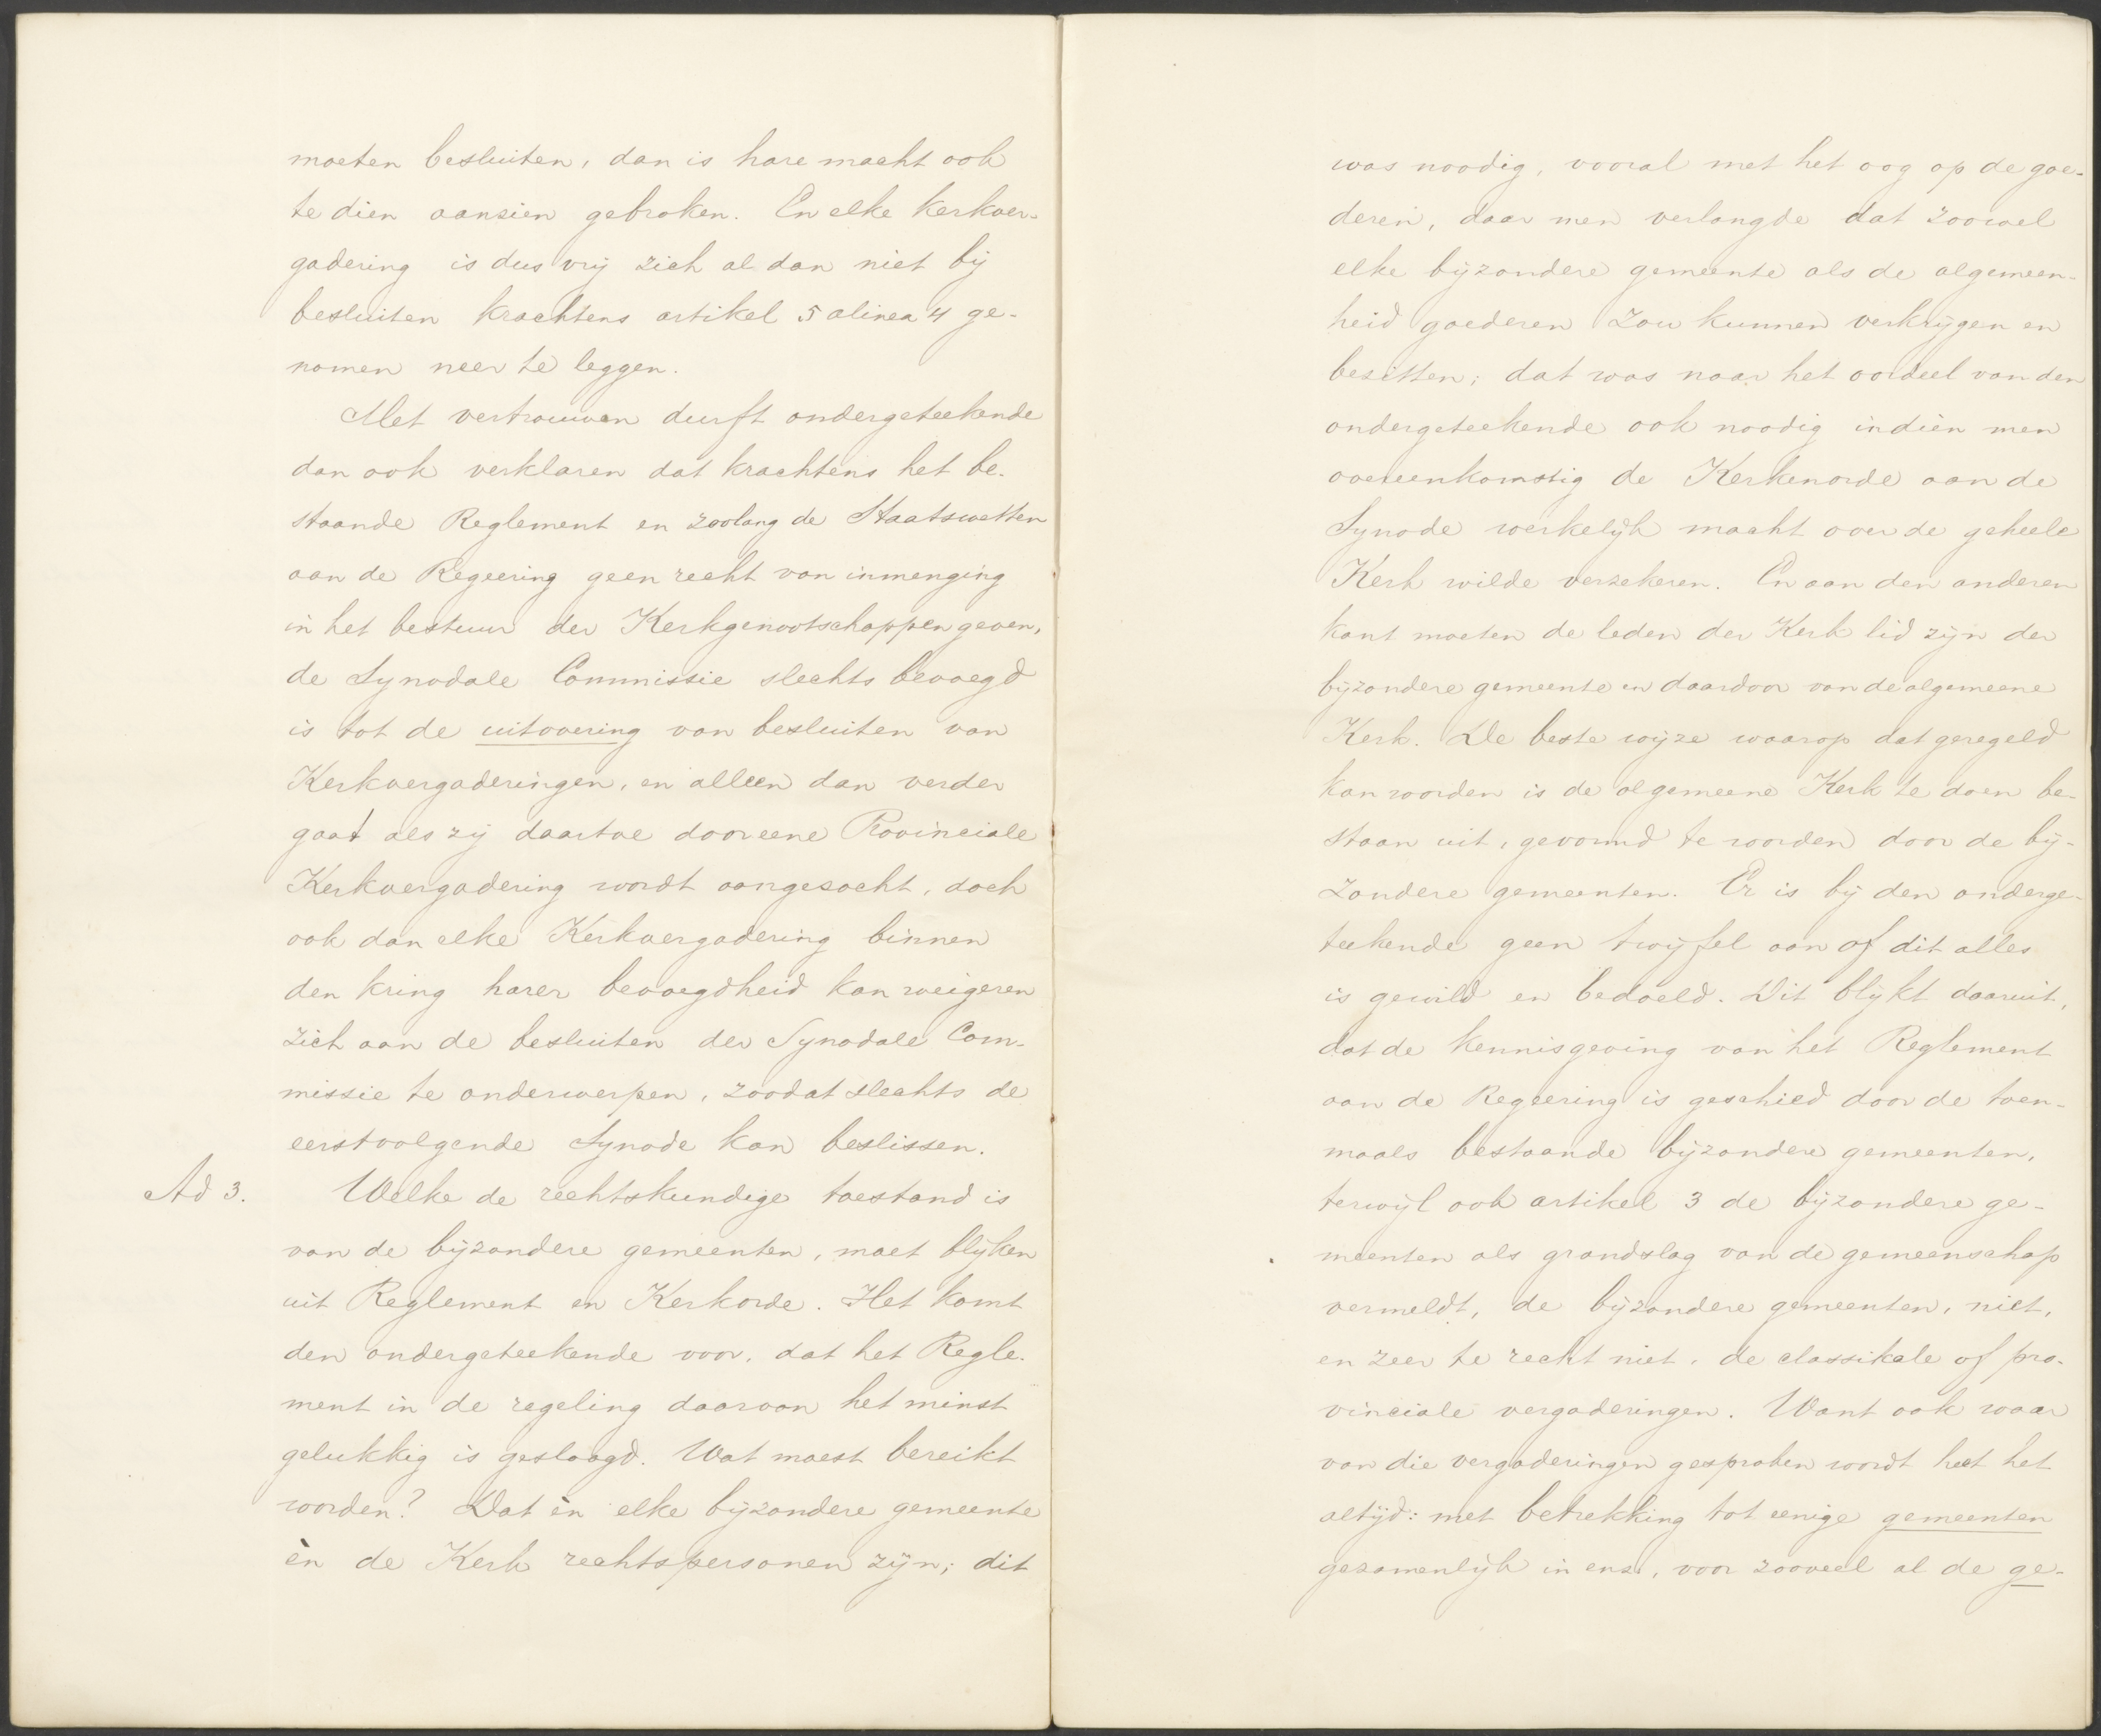 moeten besluiten, dan is hare macht ook
te dien aanzien gebroken. En elke kerkver-
gadering is dus vrij zich al dan niet bij
besluiten krachtens artikel 5 alinea 4 ge-
nomen neer te leggen.
Met vertrouwen durft ondergeteekende
dan ook verklaren dat krachtens het be-
staande Reglement en zoolang de Staatswetten
aan de Regeering geen recht van inmenging
in het bestuur der Kerkgenootschappen geven,
de Synodale Commissie slechts bevoegd
is tot de uitvoering van besluiten van
Kerkvergaderingen, en alleen dan verder
gaat als zij daartoe door eene Provinciale
Kerkvergadering wordt aangezocht, doch
ook dan elke Kerkvergadering binnen
den kring harer bevoegdheid kan weigeren
zich aan de besluiten der Synodale Com-
missie te onderwerpen, zoodat slechts de
eerstvolgende Synode kan beslissen.
Ad 3. Welke de rechtskundige toestand is
van de bijzondere gemeenten, moet blijken
uit Reglement en Kerkorde. Het komt
den ondergeteekende voor, dat het Regle-
ment in de regeling daarvan het minst
gelukkig is geslaagd. Wat moest bereikt
worden? Dat èn elke bijzondere gemeente
èn de Kerk rechtspersonen zijn; dit
was noodig, vooral met het oog op de goe-
deren, daar men verlangde dat zoowel
elke bijzondere gemeente als de algemeen-
heid goederen zou kunnen verkrijgen en
bezitten; dat was naar het oordeel van den
ondergeteekende ook noodig indien men
overeenkomstig de Kerkenorde aan de
Synode werkelijk macht over de geheele
Kerk wilde verzekeren. En aan den anderen
kant moeten de leden der Kerk lid zijn der
bijzondere gemeente en daardoor van de algemeene
Kerk. De beste wijze waarop dat geregeld
kan worden is de algemeene Kerk te doen be-
staan uit, gevormd te worden door de bij-
zondere gemeenten. Er is bij den onderge-
teekende geen twijfel aan of dit alles
is gewild en bedoeld. Dit blijkt daaruit,
dat de kennisgeving van het Reglement
aan de Regeering is geschied door de toen-
maals bestaande bijzondere gemeenten,
terwijl ook artikel 3 de bijzondere ge-
meenten als grondslag van de gemeenschap
vermeldt, de bijzondere gemeenten, niet,
en zeer te recht niet, de classikale of pro-
vinciale vergaderingen. Want ook waar
van die vergaderingen gesproken wordt heet het
altijd: met betrekking tot eenige gemeenten
gezamenlijk in enz., voor zooveel al de ge-